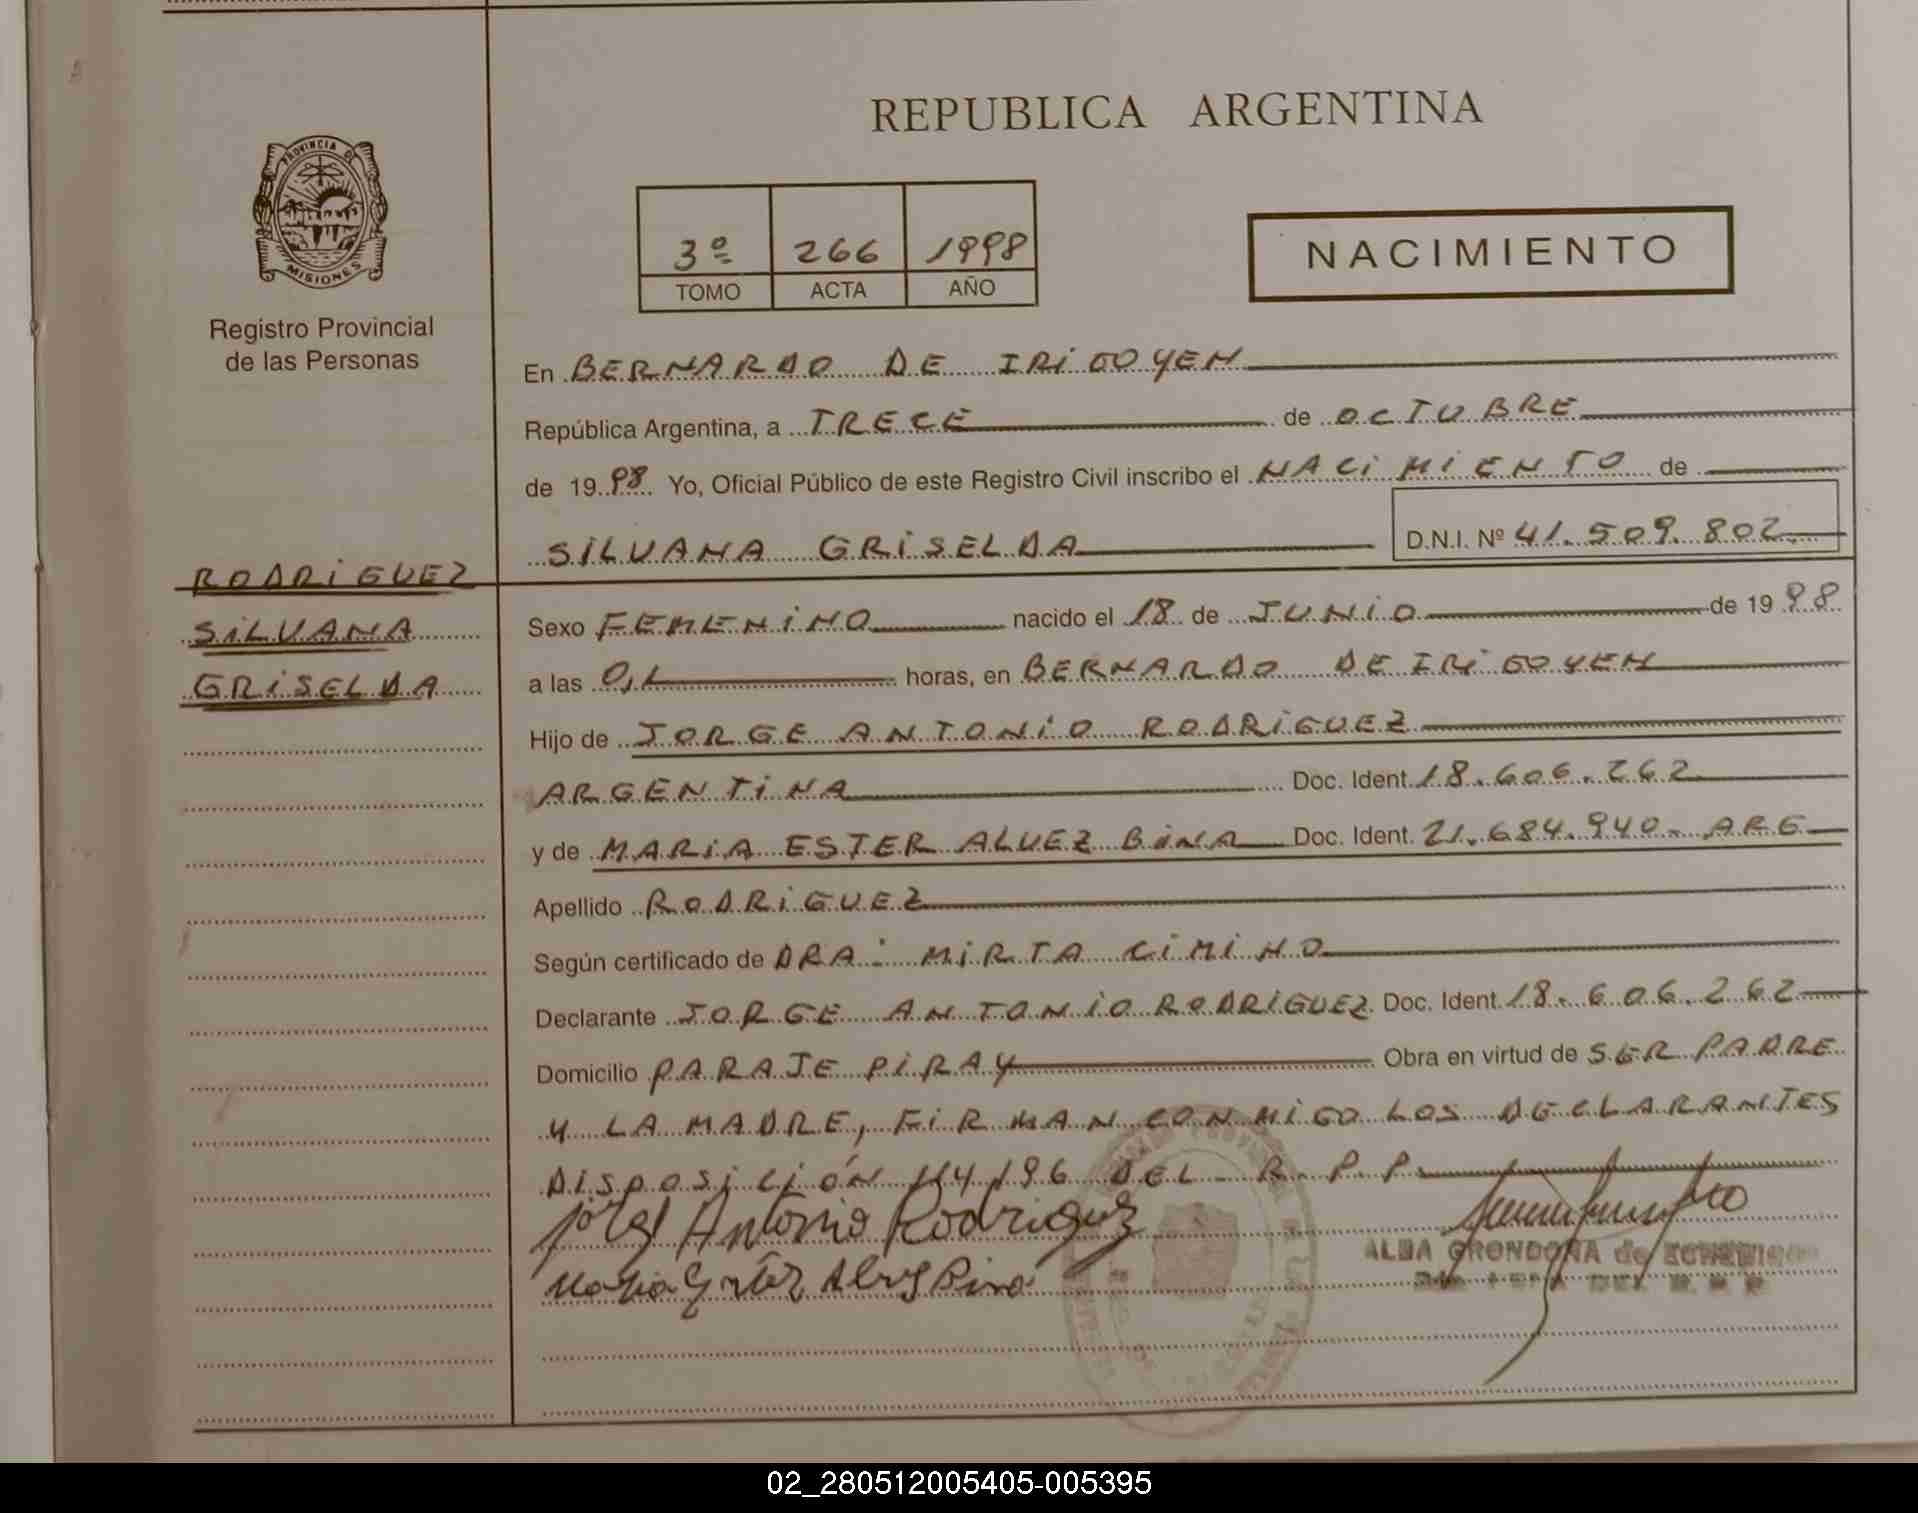 REPUBLICA ARGENTINA
PROVINCIA DE
MISIONES
Registro Provincial
de las Personas
3º 266 1998
TOMO ACTA AÑO
NACIMIENTO
En BERNARDO DE IRIGOYEN
República Argentina, a TRECE de OCTUBRE
de 1998 Yo, Oficial Público de este Registro Civil inscribo el NACIMIENTO de
SILVANA GRISELDA D.N.I. Nº 41.509.802.
RODRIGUEZ
SILVANA
GRISELDA
Sexo FEMENINO nacido el 18 de JUNIO de 1998
a las 0,1 horas, en BERNARDO DE IRIGOYEN
Hijo de JORGE ANTONIO RODRIGUEZ
ARGENTINA Doc. Ident. 18.606.262
y de MARIA ESTER ALVEZ BINA Doc. Ident. 21.684.940. ARG
Apellido RODRIGUEZ
Según certificado de DRA: MIRTA CIMINO
Declarante JORGE ANTONIO RODRIGUEZ Doc. Ident. 18.606.262
Domicilio PARAJE PIRAY Obra en virtud de SER PADRE
Y LA MADRE, FIRMAN CONMIGO LOS DECLARANTES
DISPOSICIÓN 114/96 DEL R.P.P.
Jorge Antonio Rodriguez
ALBA GRONDONA de
02_280512005405-005395